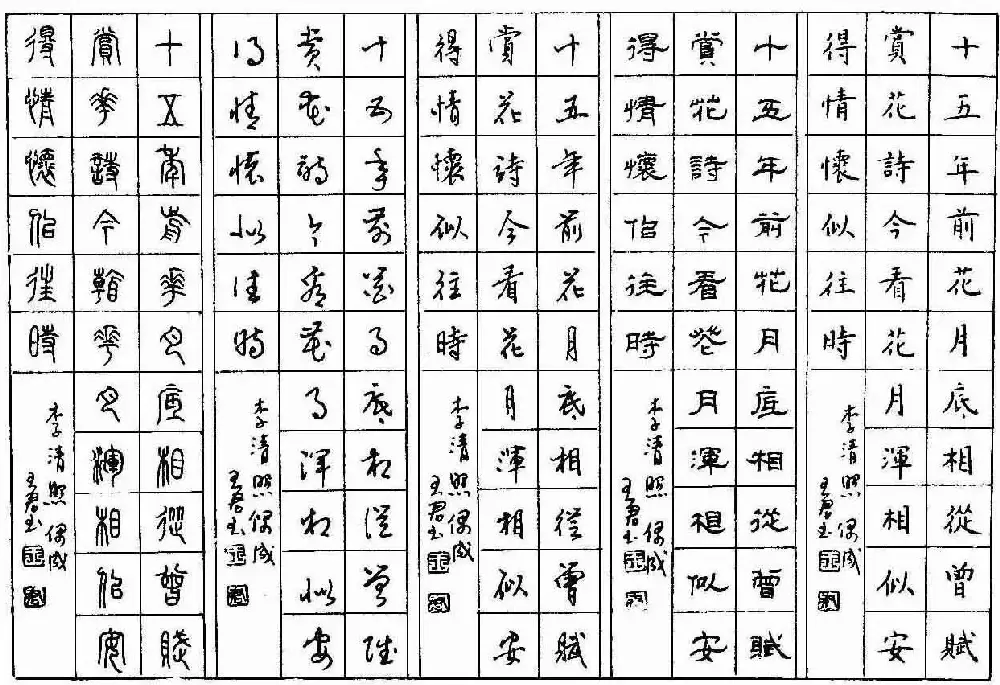 十五年前花月底相從曾賦
賞花詩今看花月渾相似安
得情懷似往時
李清照偶成
王君书
十五年前花月底相從曾賦
賞花詩今看花月渾相似安
得情懷似往時
李清照偶成
王君书
十五年前花月底相從曾賦
賞花詩今看花月渾相似安
得情懷似往時
李清照偶成
王君书
十五年前花月底相從曾賦
賞花詩今看花月渾相似安
得情懷似往時
李清照偶成
王君书
十五年前花月底相從曾賦
賞花詩今看花月渾相似安
得情懷似往時
李清照偶成
王君书